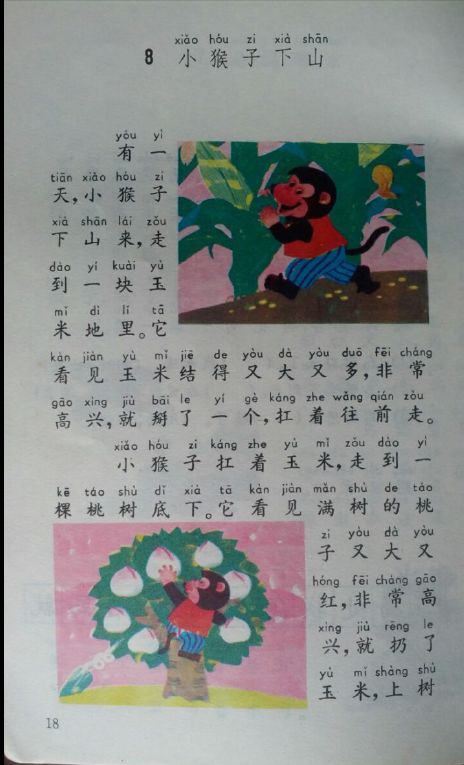 xiǎo hóu zi xià shān
8 小猴子下山
yóu yì
有一
tiān xiǎo hóu zi
天，小猴子
xià shān lái zǒu
下山来，走
dào yí kuài yù
到一块玉
mǐ dì lǐ tā
米地里。它
kàn jiàn yù mǐ jiē de yòu dà yòu duō fēi cháng
看见玉米结得又大又多，非常
gāo xìng jiù bāi le yí gè káng zhe wǎng qián zǒu
高兴，就掰了一个，扛着往前走。
xiǎo hóu zi káng zhe yù mǐ zǒu dào yì
小猴子扛着玉米，走到一
kē táo shù dǐ xià tā kàn jiàn mǎn shù de táo
棵桃树底下。它看见满树的桃
zi yòu dà yòu
子又大又
hóng fēi cháng gāo
红，非常高
xìng jiù rēng le
兴，就扔了
yù mǐ shàng shù
玉米，上树
18